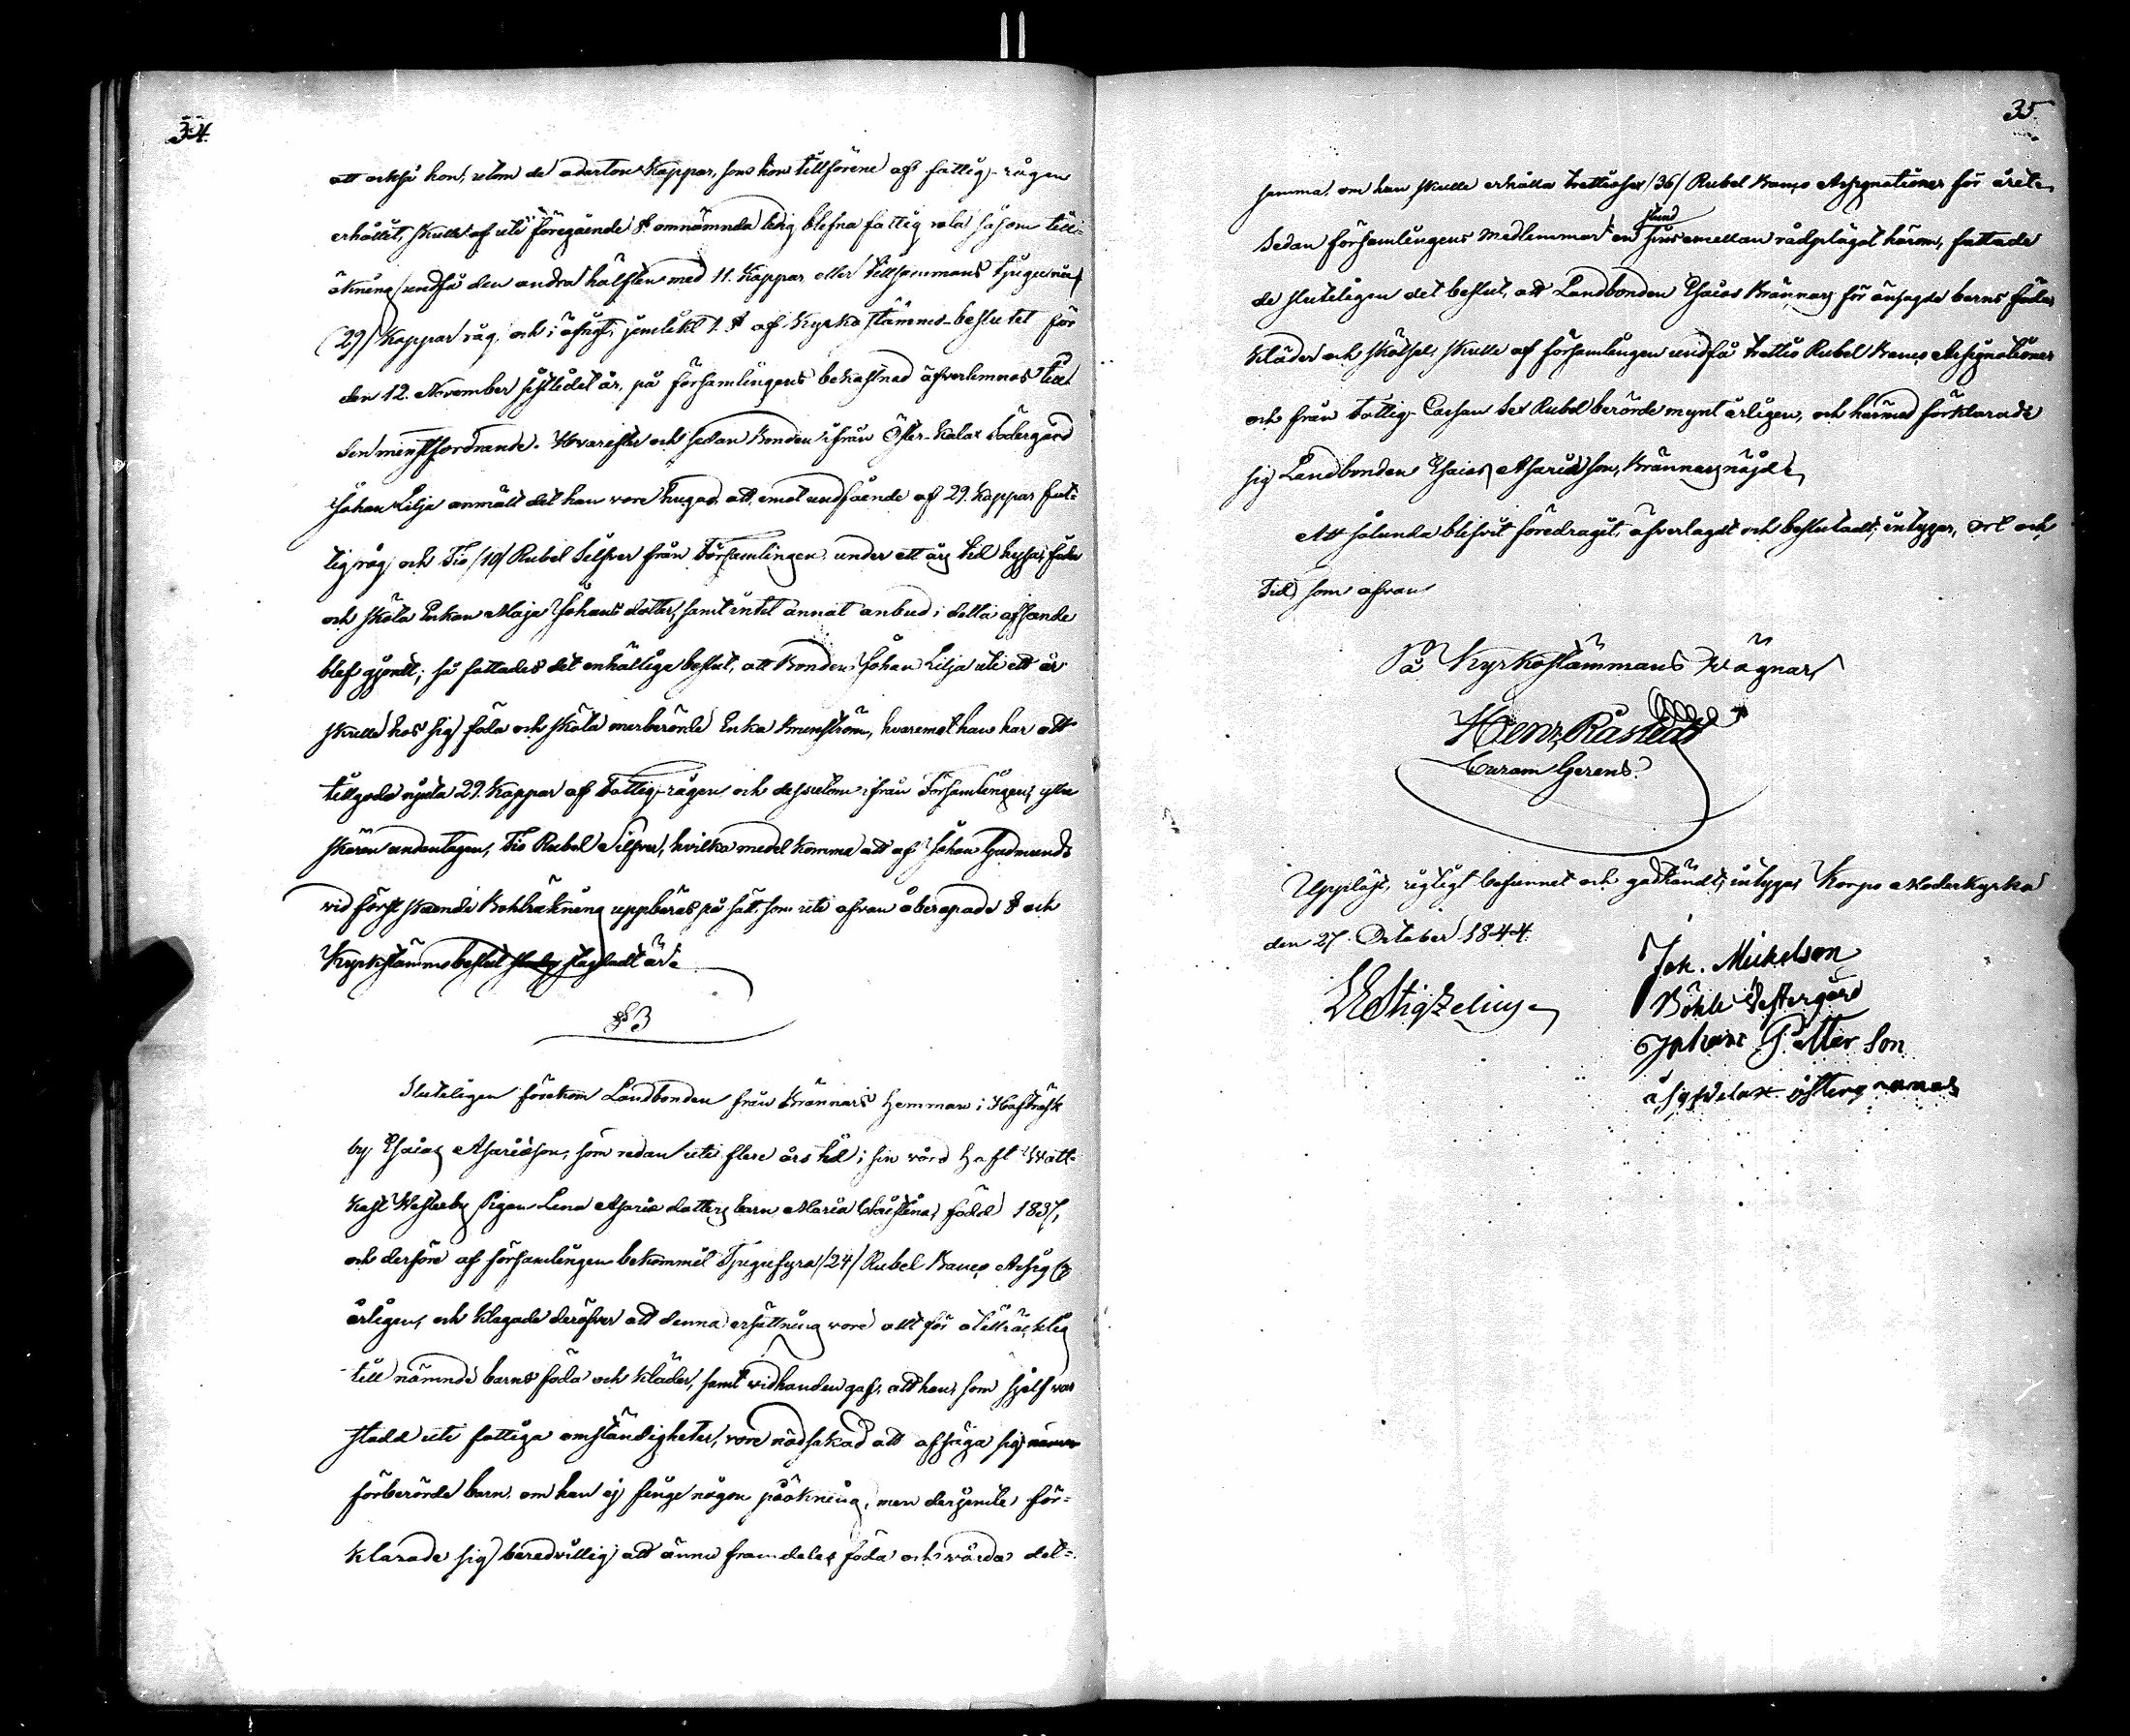 34.
att också hon, utom de aderton Kappar, som hon tillförene af fattig-rågen
erhållit, skulle af uti föregående §. omnämnda ledig blefna fattig våla såsom till-
ökning undfå den andra hälften med 11. Kappar eller tillsammans tjugunio
(29) Kappar råg, och i öfrigt, jemlikt 1. § af Kyrko stämmo-beslutet för
den 12. November sistledet år, på församlingens bekostnad öfverlemnas till
den minstfordrande. Hvarefter och sedan Bonden ifrån Öster-Kalax Södergård
Johan Lilja anmält det han vore hugad att emot undfående af 29. Kappar fat-
tig råg och Tio /10/ Rubel Silfver från Församlingen under ett års tid hysa, föda
och sköta Enkan Maja Johans dotter, samt intet annat anbud i detta afseende
blef gjordt; så fattades det enhälliga beslut, att Bonden Johan Lilja uti ett år
skulle hos sig föda och sköta merberörde Enka Brunström, hvaremot han har att
tillgodo njuta 29. Kappar af Fattig-rågen och dessutom ifrån Församlingen, yttre
skären undantagen, Tio Rubel Silfver, hvilka medel komma att af Johan Gudmunds
vid först skeende Bohlräkning uppbäras på sätt, som uti ofvan åberopade § och
Kyrkstämmobeslut stadgadt är.
§ 3
Sluteligen förekom Landbonden från Brännars Hemman i Hafträsk
by, Esaias Asarisson, som redan uti flere års tid i sin vård haft Watt-
kast Westerby Pigan Lena Asaria dotters barn Maria Christina, född 1837,
och derföre af församlingen bekommit Tjugufyra /24/ Rubel Banco Assig
årligen, och klagade deröfver att denna ersättning vore allt för otillräcklig
till nämnde barns föda och kläder, samt vidhanden gaf, att han, som sjelf var
stadd uti fattiga omständigheter, vore nödsakad att afsäga sig
förberörde barn, om han ej finge någon påökning, men derjemte för-
klarade sig beredvillig att ännu framdeles föda och vårda det-
35.
samma, om han skulle erhålla trettiosex /36/ Rubel Banco Assignationer för året.
Sedan församlingens medlemmar en stund sins emellan rådplägat härom, fattade
de sluteligen det beslut, att Landbonden Esaias Brännars för änsagde barns föda,
kläder och skötsel, skulle af församlingen undfå trettio Rubel Banco Assignationer
och från Fattig-Cassan sex Rubel berörde mynt årligen, och härmed förklarade
sig Landbonden Esaias Asarisson Brännars nöjd.
Att sålunda blifvit föredragit, öfverlagdt och beslutadt, intygar, Ort och
tid som ofvan
På Kyrkostämmans wägnar
Henr. Råstedt
Curam Gerens.
Uppläst, rigtigt befunnet och godkändt, intygas Korpo Moderkyrka
den 27. October 1844.
Joh. Mickelson
Böhle Västergård
Johan Petter Son